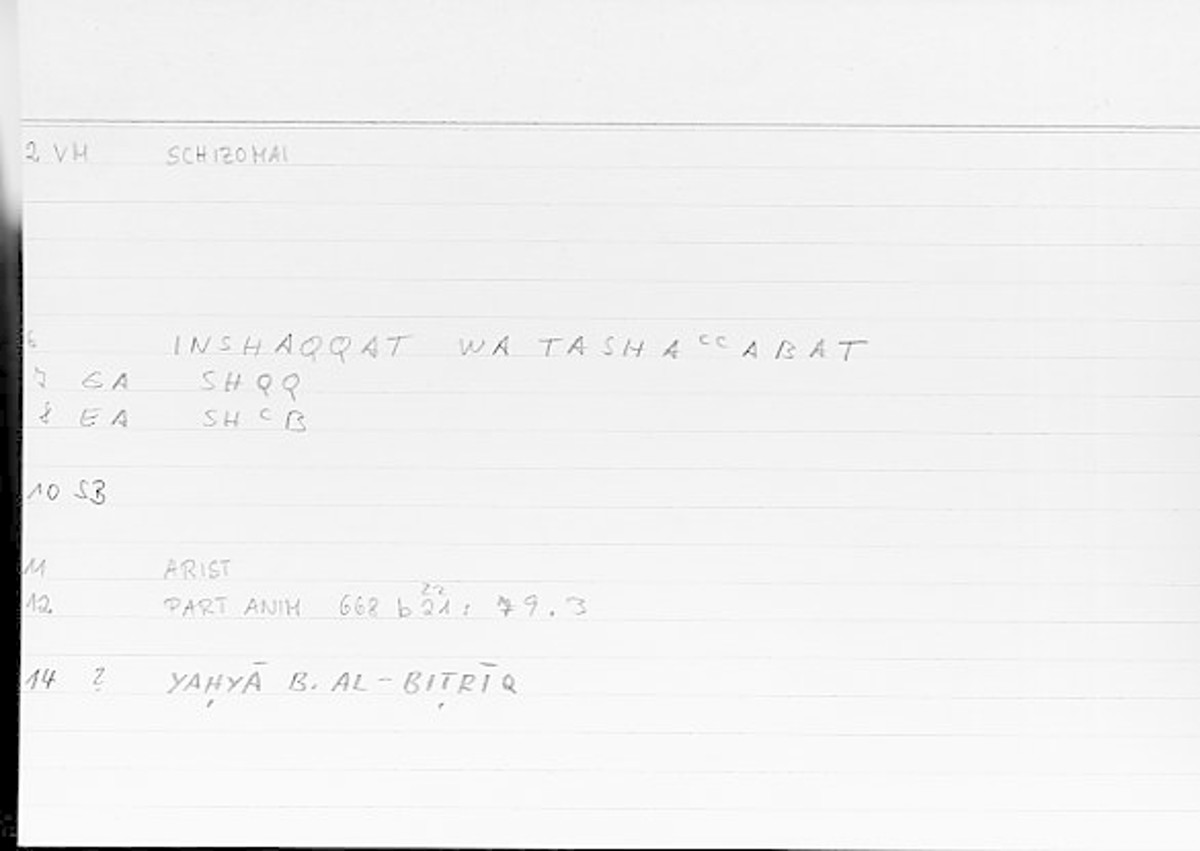 2 VM SCHIZOMAI
6 INSHAQQAT WA TASHAᶜᶜABAT
7 EA SHQQ
8 EA SHᶜB
10 SB
11 ARIST
12 PART ANIM 668 b 21 22 : 79.3
14 ? YAḤYĀ B. AL-BIṬRĪQ